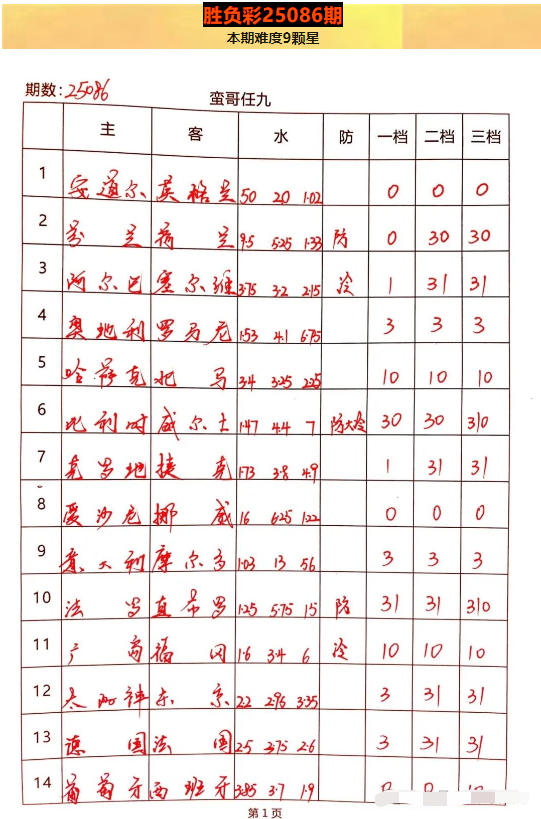 胜负彩25086期
本期难度9颗星
期数:25086 蛮哥任九
主 客 水 防 一档 二档 三档
1 安道尔 英格兰 50 20 1·02 0 0 0
2 芬兰 荷兰 9·5 5·25 1·33 防 0 30 30
3 阿尔巴 塞尔维 3·75 3·2 2·15 冷 1 31 31
4 奥地利 罗马尼 1·53 4·1 6·75 3 3 3
5 哈萨克 北马 3·4 3·25 2·25 10 10 10
6 比利时 威尔士 1·47 4·4 7 防大冷 30 30 310
7 克罗地 捷克 1·73 3·8 4·9 1 31 31
8 爱沙尼 挪威 16 6·25 1·22 0 0 0
9 意大利 摩尔多 1·03 13 56 3 3 3
10 法罗 直布罗 1·25 5·75 15 防 31 31 310
11 广岛 福冈 1·6 3·4 6 冷 10 10 10
12 大阪神 东京 2·2 2·96 3·35 3 31 31
13 德国 法国 2·5 3·75 2·6 3 31 31
14 葡萄牙 西班牙 3·85 3·7 1·9
第1页